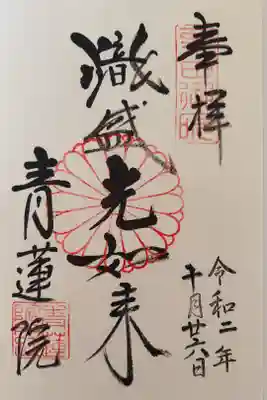 奉拝
熾盛光如来
青蓮院
令和二年
十月廿六日